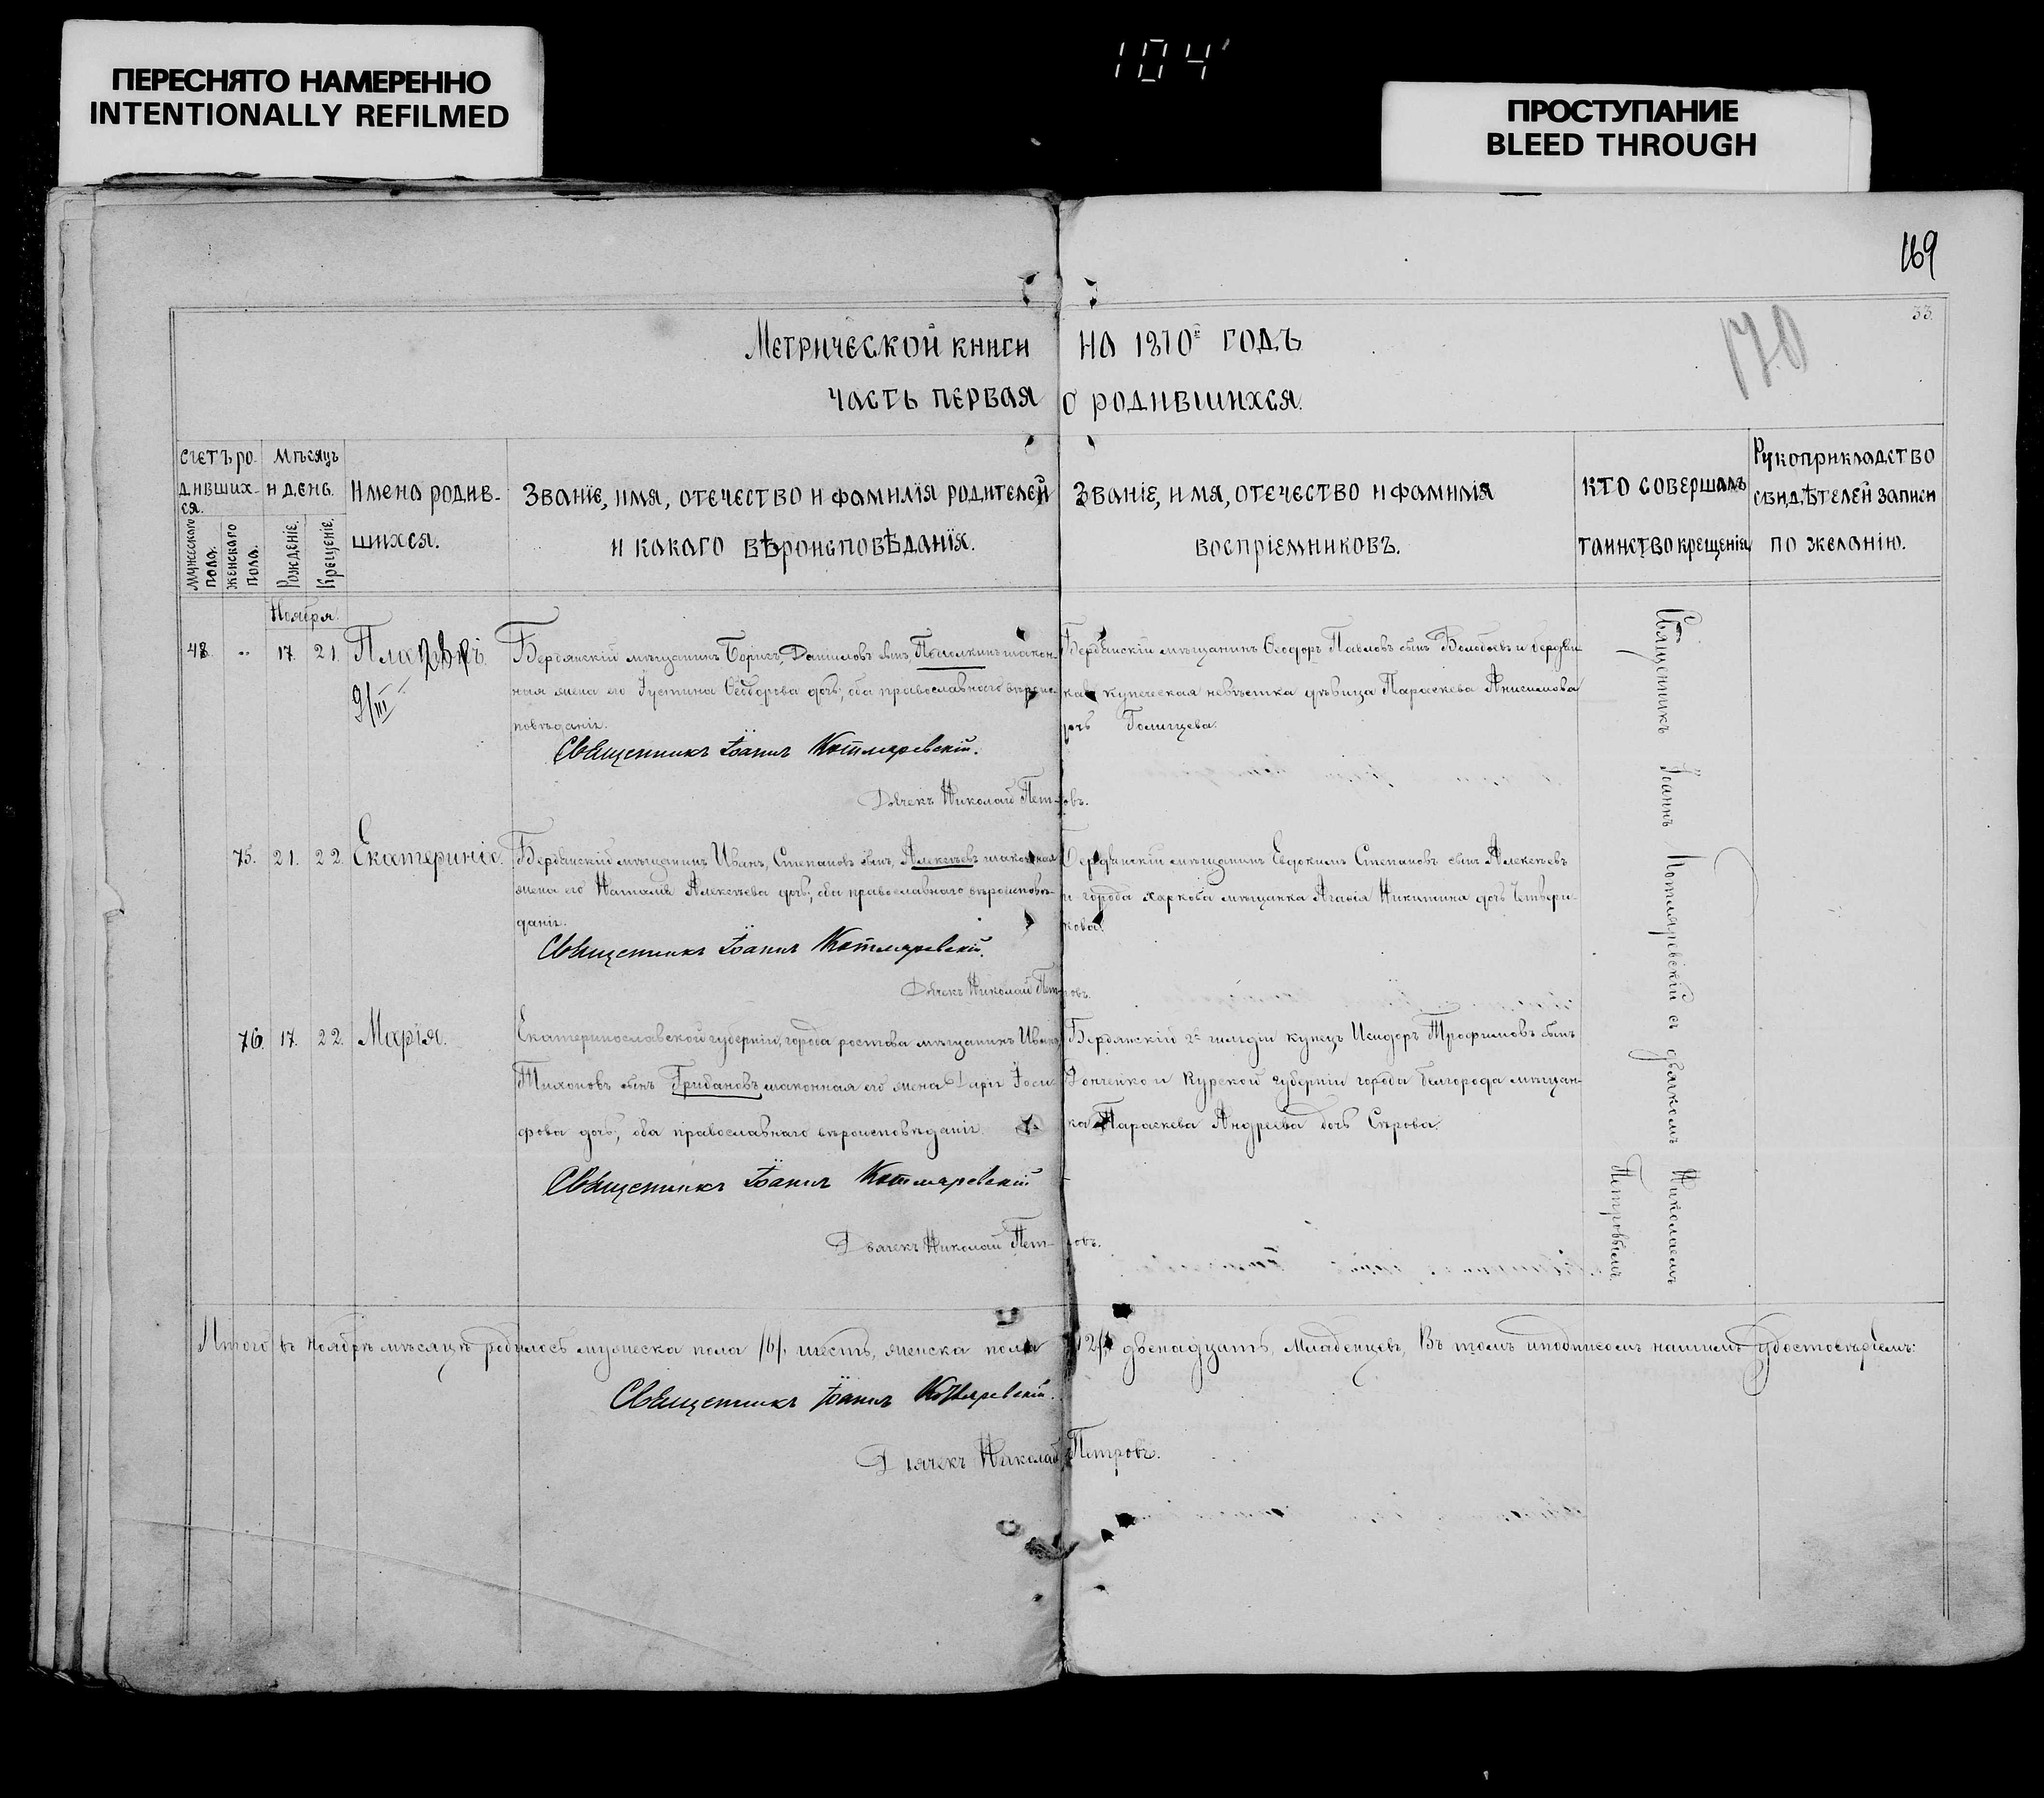 ПЕРЕСНЯТО НАМЕРЕННО
INTENTIONALLY REFILMED
104
ПРОСТУПАНИЕ
BLEED THROUGH
169
33.
170
Метрической книги на 1870й годъ
часть первая о родившихся.
Счетъ родившихся.
мужескаго пола.
женскаго пола.
Мѣсяцъ и день.
Рожденіе.
Крещеніе.
Имена родившихся.
Званіе, имя, отечество и фамилія родителей
и какаго вѣроисповѣданія.
Званіе, имя, отечество и фамилія
воспріемниковъ.
кто совершалъ
таинство крещенія
Рукоприкладство
свидѣтелей записи
по желанію.
Ноября
48. " 17. 21.
9/III
Бердянскій мѣщанинъ Борисъ, Даніиловъ сынъ, закон-
ная жена его Іустина Ѳеодорова дочь; оба православнаго вѣроис-
повѣданія.
Священникъ Іоаннъ Котляревскій.
Дячекъ Николай Петровъ.
Бердянскій мѣщанинъ Ѳеодоръ Павловъ сынъ и Бердян-
ская купеческая невѣстка дѣвица Параскева Анисимова
дочь Голищева.
75. 21. 22. Екатерина.
Бердянскій мѣщанинъ Иванъ, Степановъ сынъ, Алексѣевъ законная
жена его Наталія Алексѣева дочь; оба православнаго вѣроисповѣ-
данія.
Священникъ Іоаннъ Котляревскій.
Дячекъ Николай Петровъ.
Бердянскій мѣщанинъ Евдокимъ Степановъ сынъ Алексѣевъ
и города Харкова мѣщанка Агафія Никитина дочь Четвери-
кова.
76. 17. 22. Марія.
Екатеринославской губерніи, города Ростова мѣщанинъ Иванъ
Тихоновъ сынъ Грибановъ законная его жена Дарія Іоси-
фова дочь; оба православнаго вѣроисповѣданія.
Священникъ Іоаннъ Котляревскій
Дьячекъ Николай Петровъ.
Бердянскій 2й гильдіи купецъ Исидоръ Трофимовъ сынъ
и Курской губерніи города Белгорода мѣщан-
ка Параскева Андреева дочь Серова.
Священникъ Іоаннъ Котляревскій съ дьячкомъ Николаемъ
Петровымъ
Итого въ ноябрѣ мѣсяцѣ родилось мужеска пола /6/ шесть, женска пола /12/ двенадцать, младенцевъ, Въ томъ и подписомъ нашимъ удостовѣряемъ:
Священникъ Іоаннъ Котляревскій.
Дьячекъ Николай Петровъ.